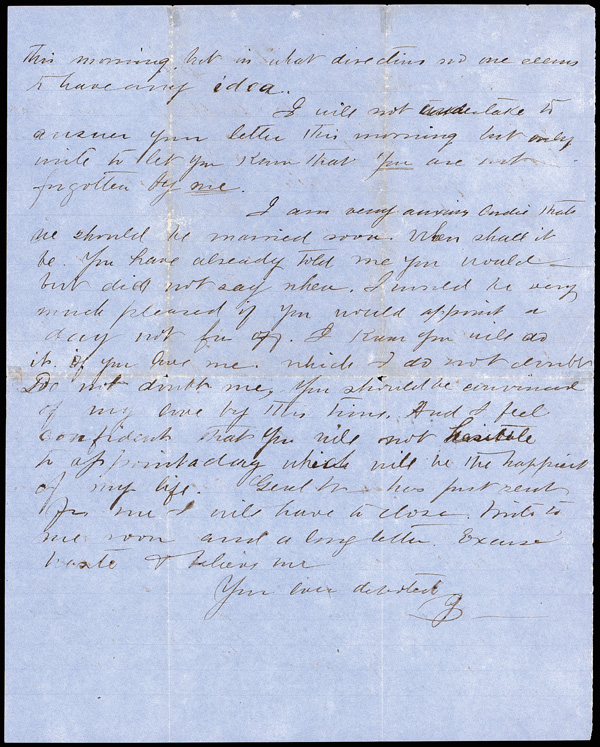 This morning, but in what direction no one seems
to have any idea.
I will not undertake to
answer your letter this morning but only
write to let you know that you are not
forgotten by me.
I am very anxious Andie that
we should be married soon. When shall it
be. You have already told me you would
but did not say when. I would be very
much pleased if you would appoint a
day not far off. I know you will do
it if you love me. which I do not doubt
Do not doubt me, you should be convinced
of my love by this time. And I feel
confident that you will not hesitate
to appoint a day which will be the happiest
of my life. Genl has just sent
for me I will have to close. Write to
me soon and a long letter. Excuse
haste & believe me
Your ever devoted